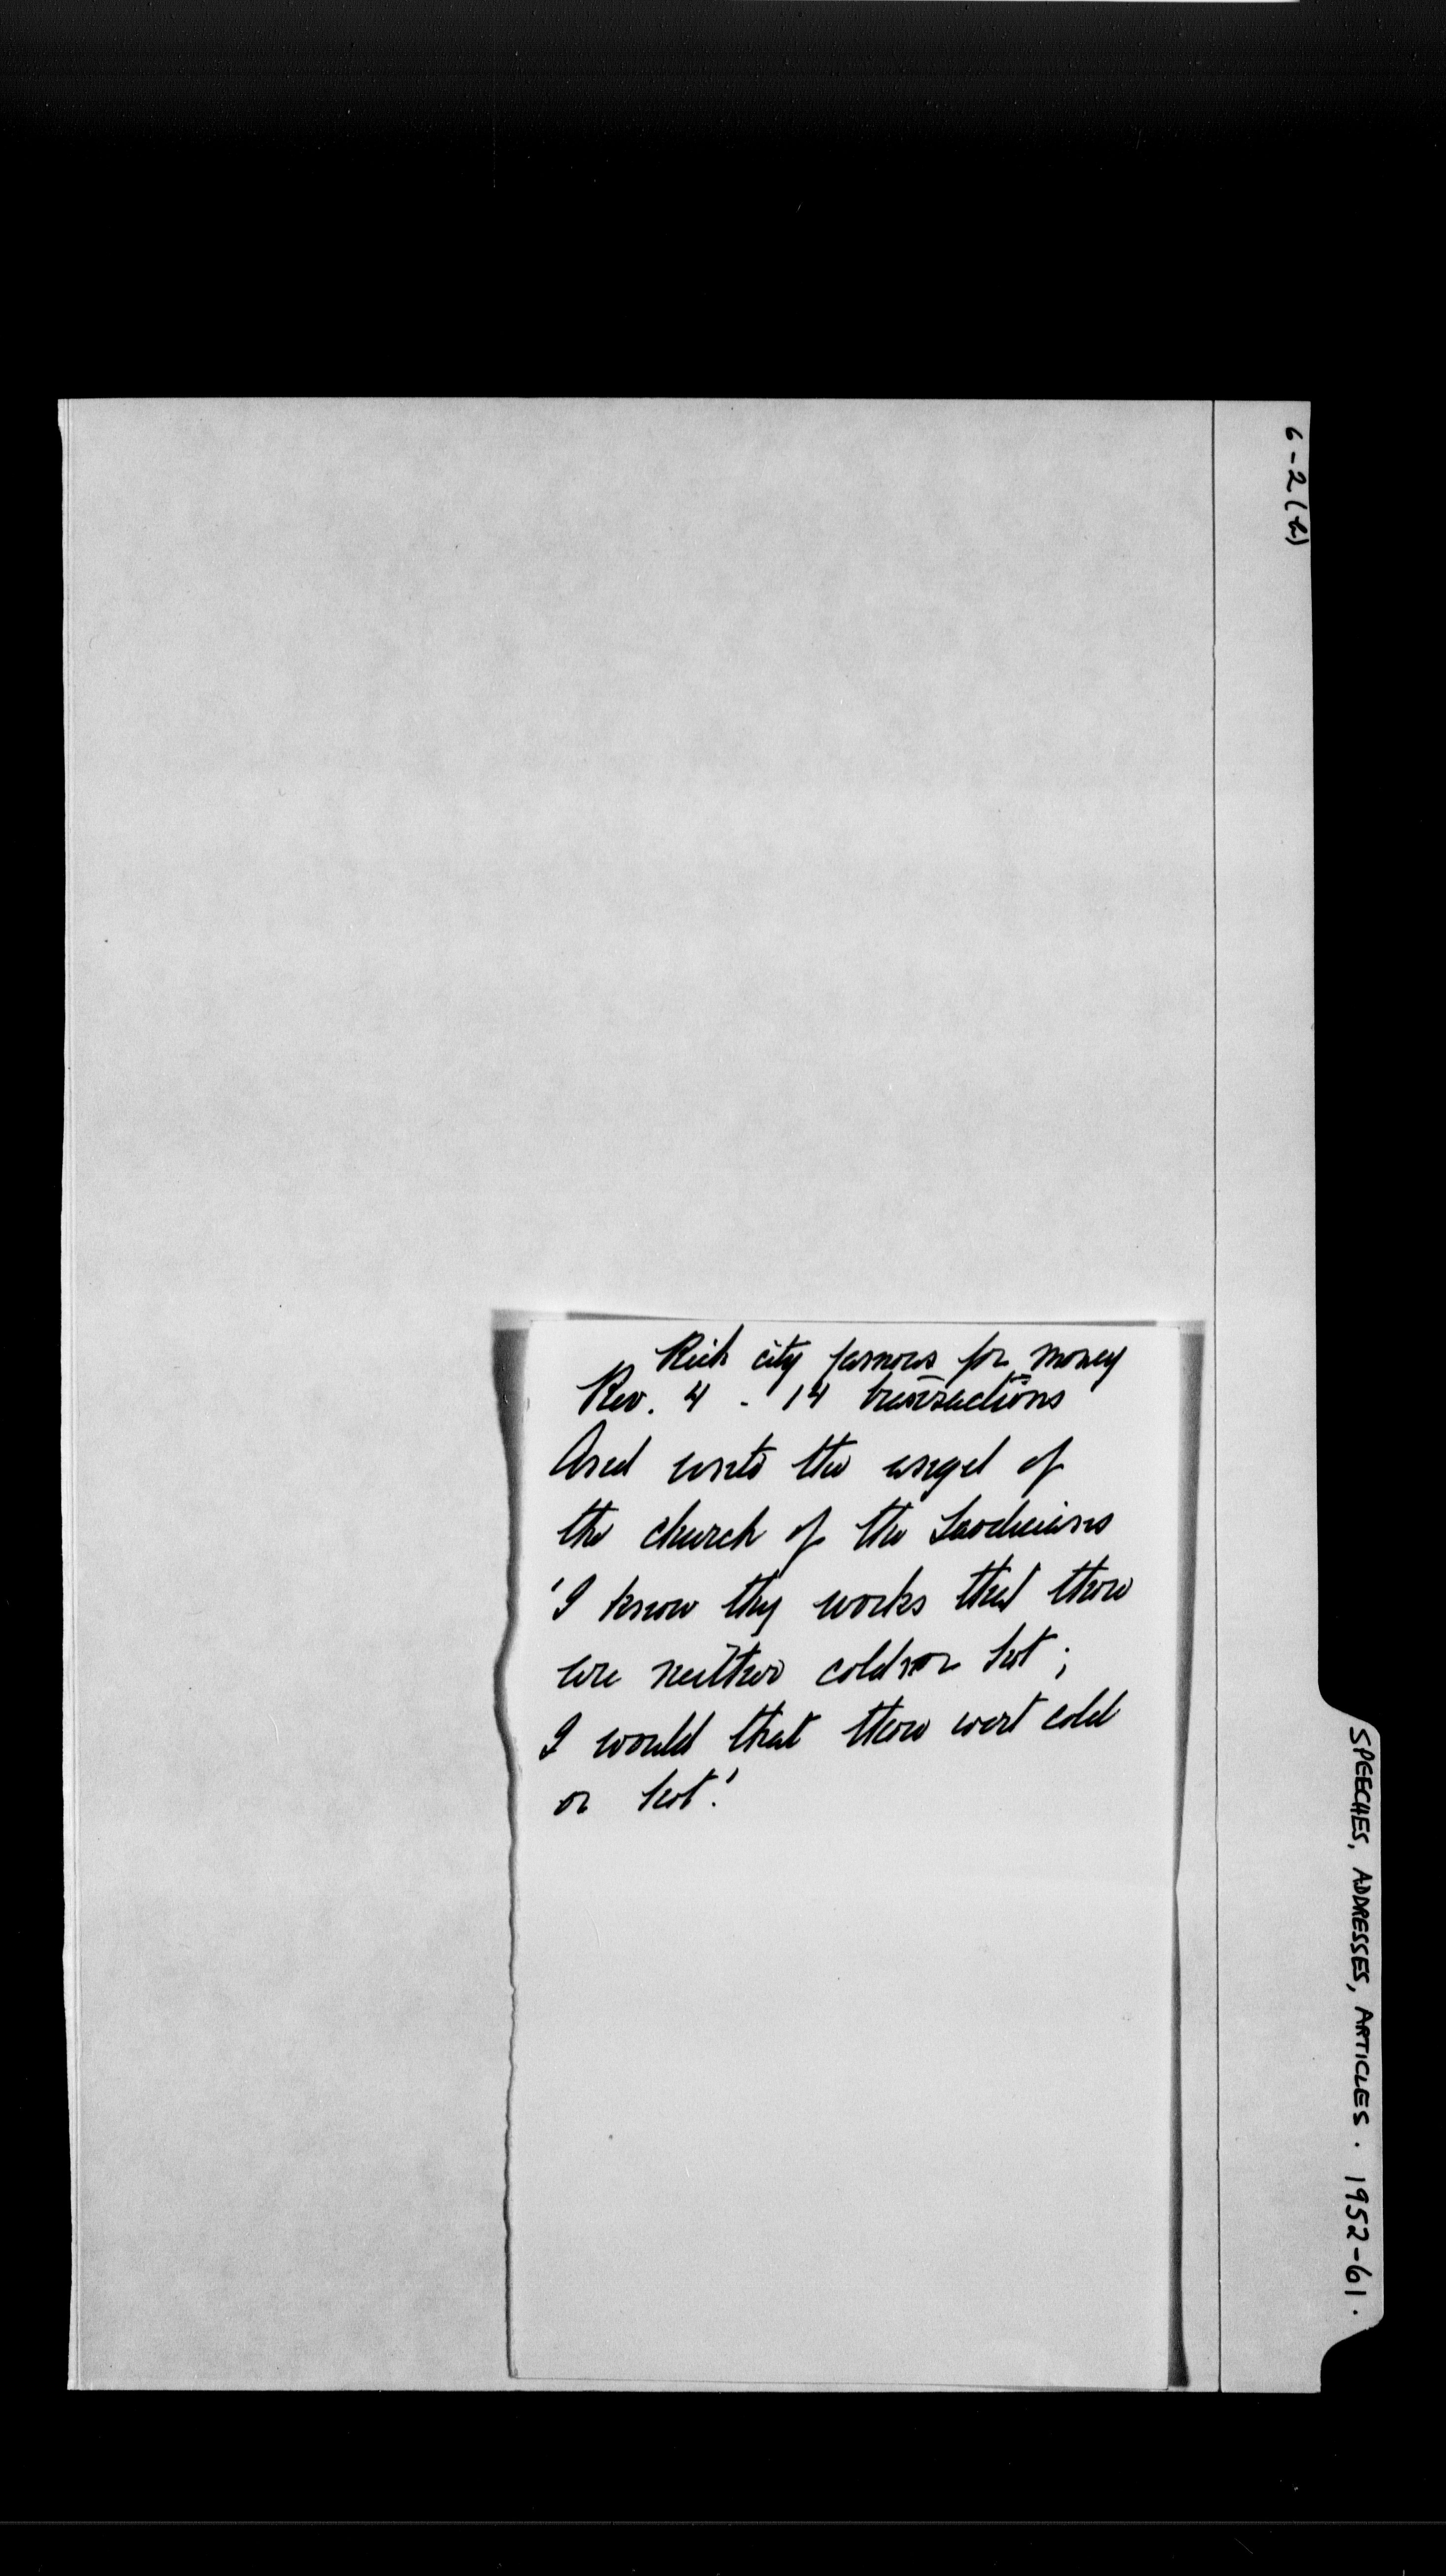 6-2(h)
SPEECHES, ADDRESSES, ARTICLES. 1952-61.
Rich city famous for money
Rev. 4 - 14 transactions
And unto the angel of
the church of the Laodicians
'I know thy works that thou
are neither cold nor hot;
I would that thou wert cold
or hot.'